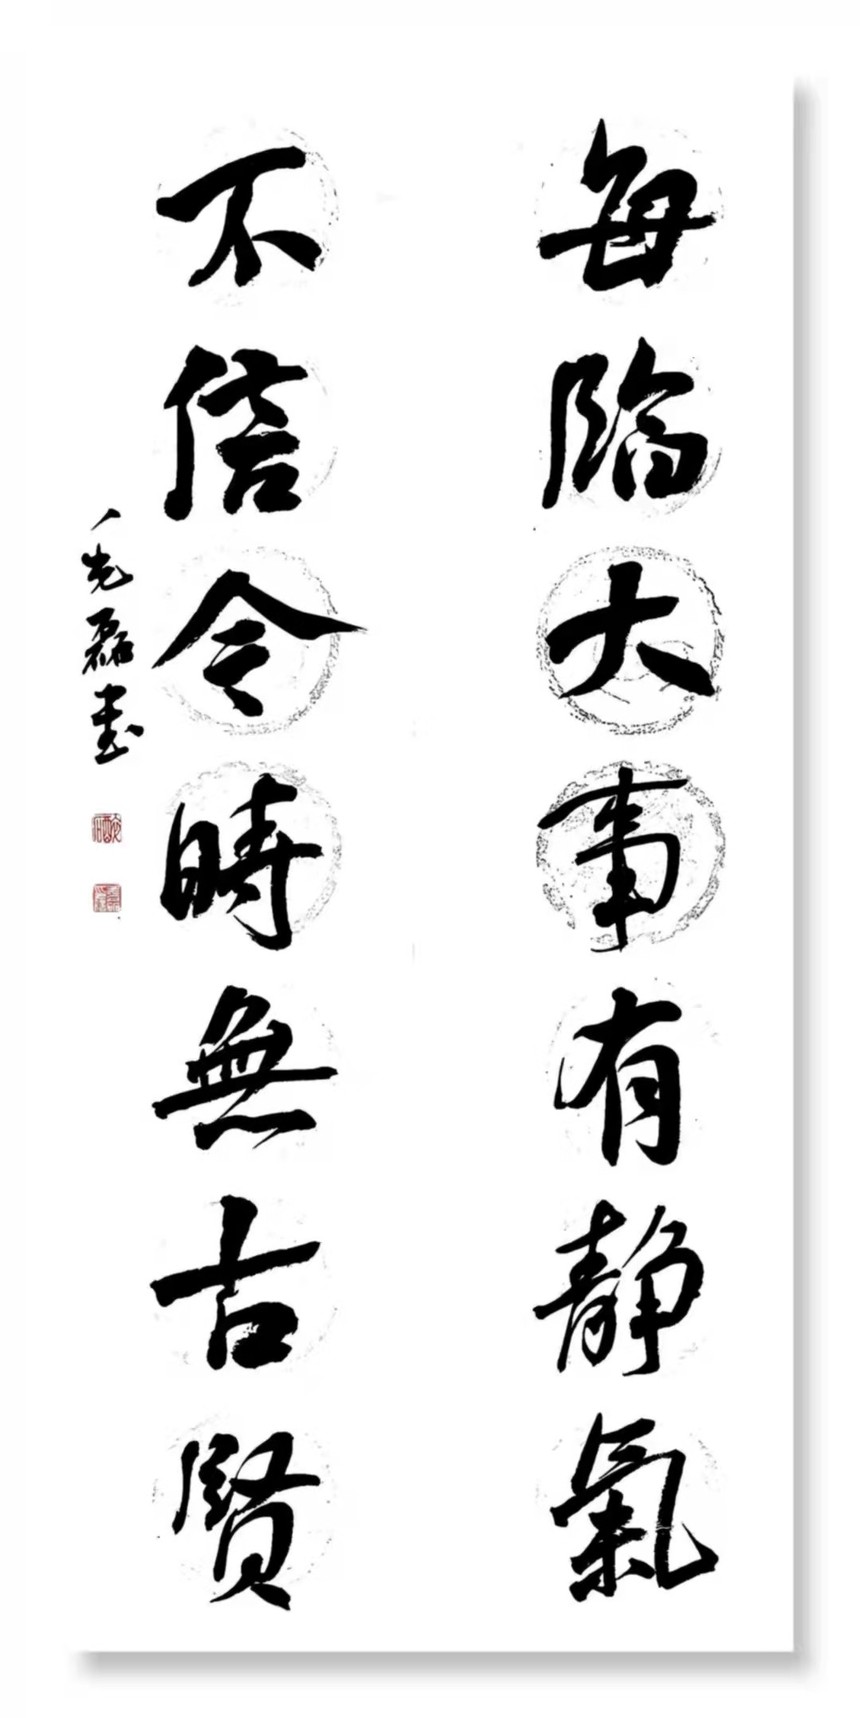 每臨大事有静氣
不信今時無古賢
磊書